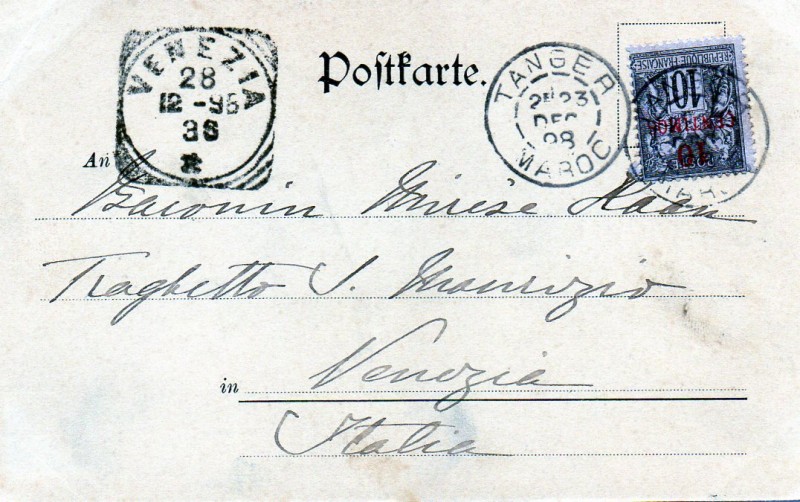 VENEZIA
28
12-98
36
Postkarte.
TANGER
2E 23
DEC
98
MAROC
REPUBLIQUE FRANÇAISE
10
CENTIMOS
10
An Baronin Mirèse Haan
Traghetto S. Maurizio
in Venezia
Italia